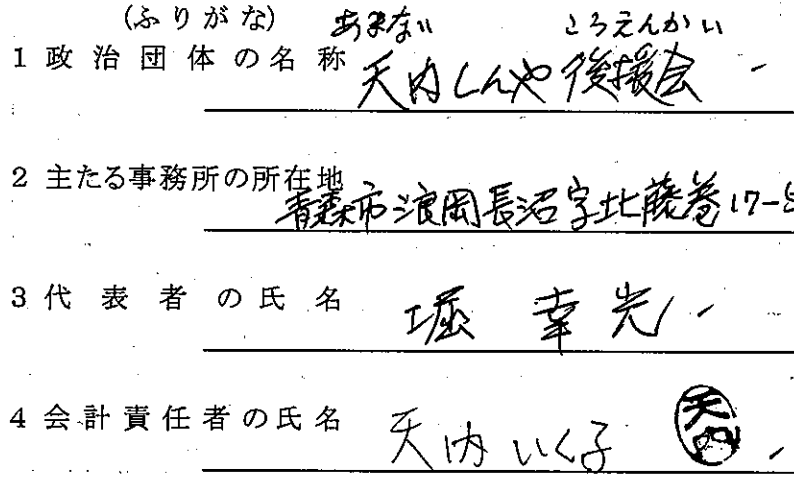 (ふりがな) あまない こうえんかい
1 政治団体の名称 天内しんや後援会
2 主たる事務所の所在地 青森市浪岡長沼字北藤巻17-8
3 代表者の氏名 堀 幸光
4 会計責任者の氏名 天内いく子 天内